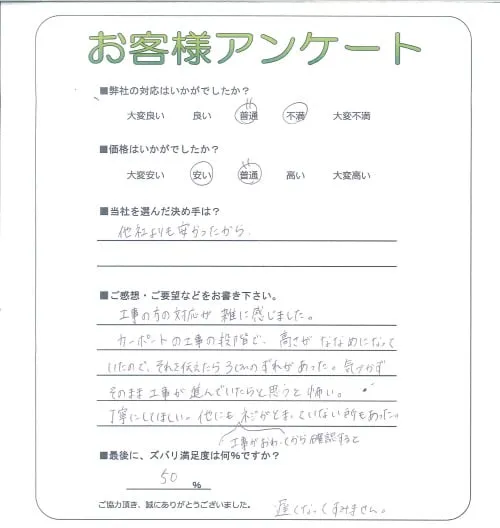 お客様アンケート
■弊社の対応はいかがでしたか？
大変良い 良い 普通 不満 大変不満
■価格はいかがでしたか？
大変安い 安い 普通 高い 大変高い
■当社を選んだ決め手は？
他社よりも安かったから.
■ご感想・ご要望などをお書き下さい。
工事の方の対応が 雑に感じました。
カーポートの工事の段階で、高さが ななめになって
いたので、それを伝えたら 3cmのずれがあった。気づかず
そのまま工事が進んでいたらと思うと怖い。
丁寧にしてほしい。他にもネジがとまっていない所もあった。
工事がおわってから確認すると
■最後に、ズバリ満足度は何％ですか？
50 ％
ご協力頂き、誠にありがとうございました。
遅くなってすみません。